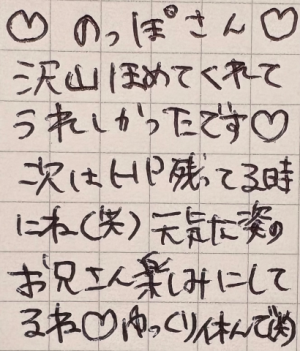 ♡ のっぽさん ♡
沢山ほめてくれて
うれしかったです♡
次はHP残ってる時
にね(笑) 元気な姿の
お兄さん楽しみにして
るね♡ゆっくり休んで(笑)